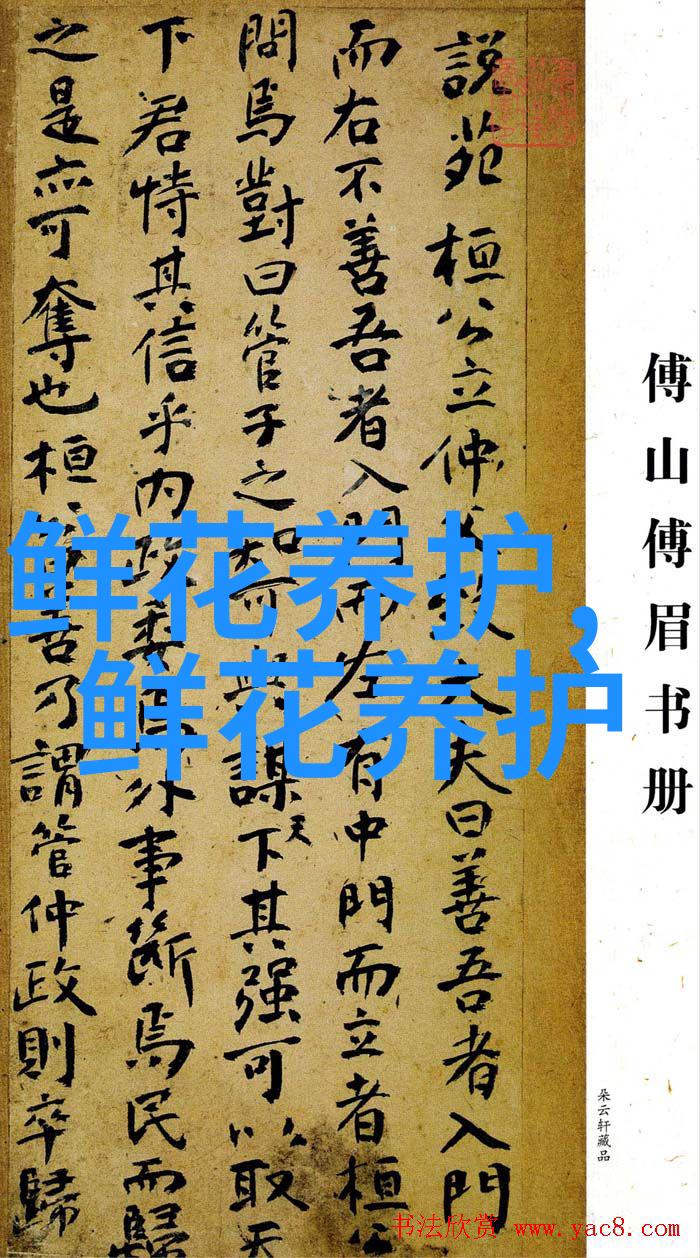 傅山傅眉书册
朵云轩藏品
說苑 桓公立仲父致大夫曰善吾者入門
而右不善吾者入門而左有中門而立者桓公
問焉對曰管子之知可與謀天下其强可以取天
下君恃其信乎内政委焉外事斷焉民而歸
之是亦可奪也桓公曰善乃謂管仲政則卒歸
鲜花养护,
鲜花养护
书法欣赏 www.yac8.com